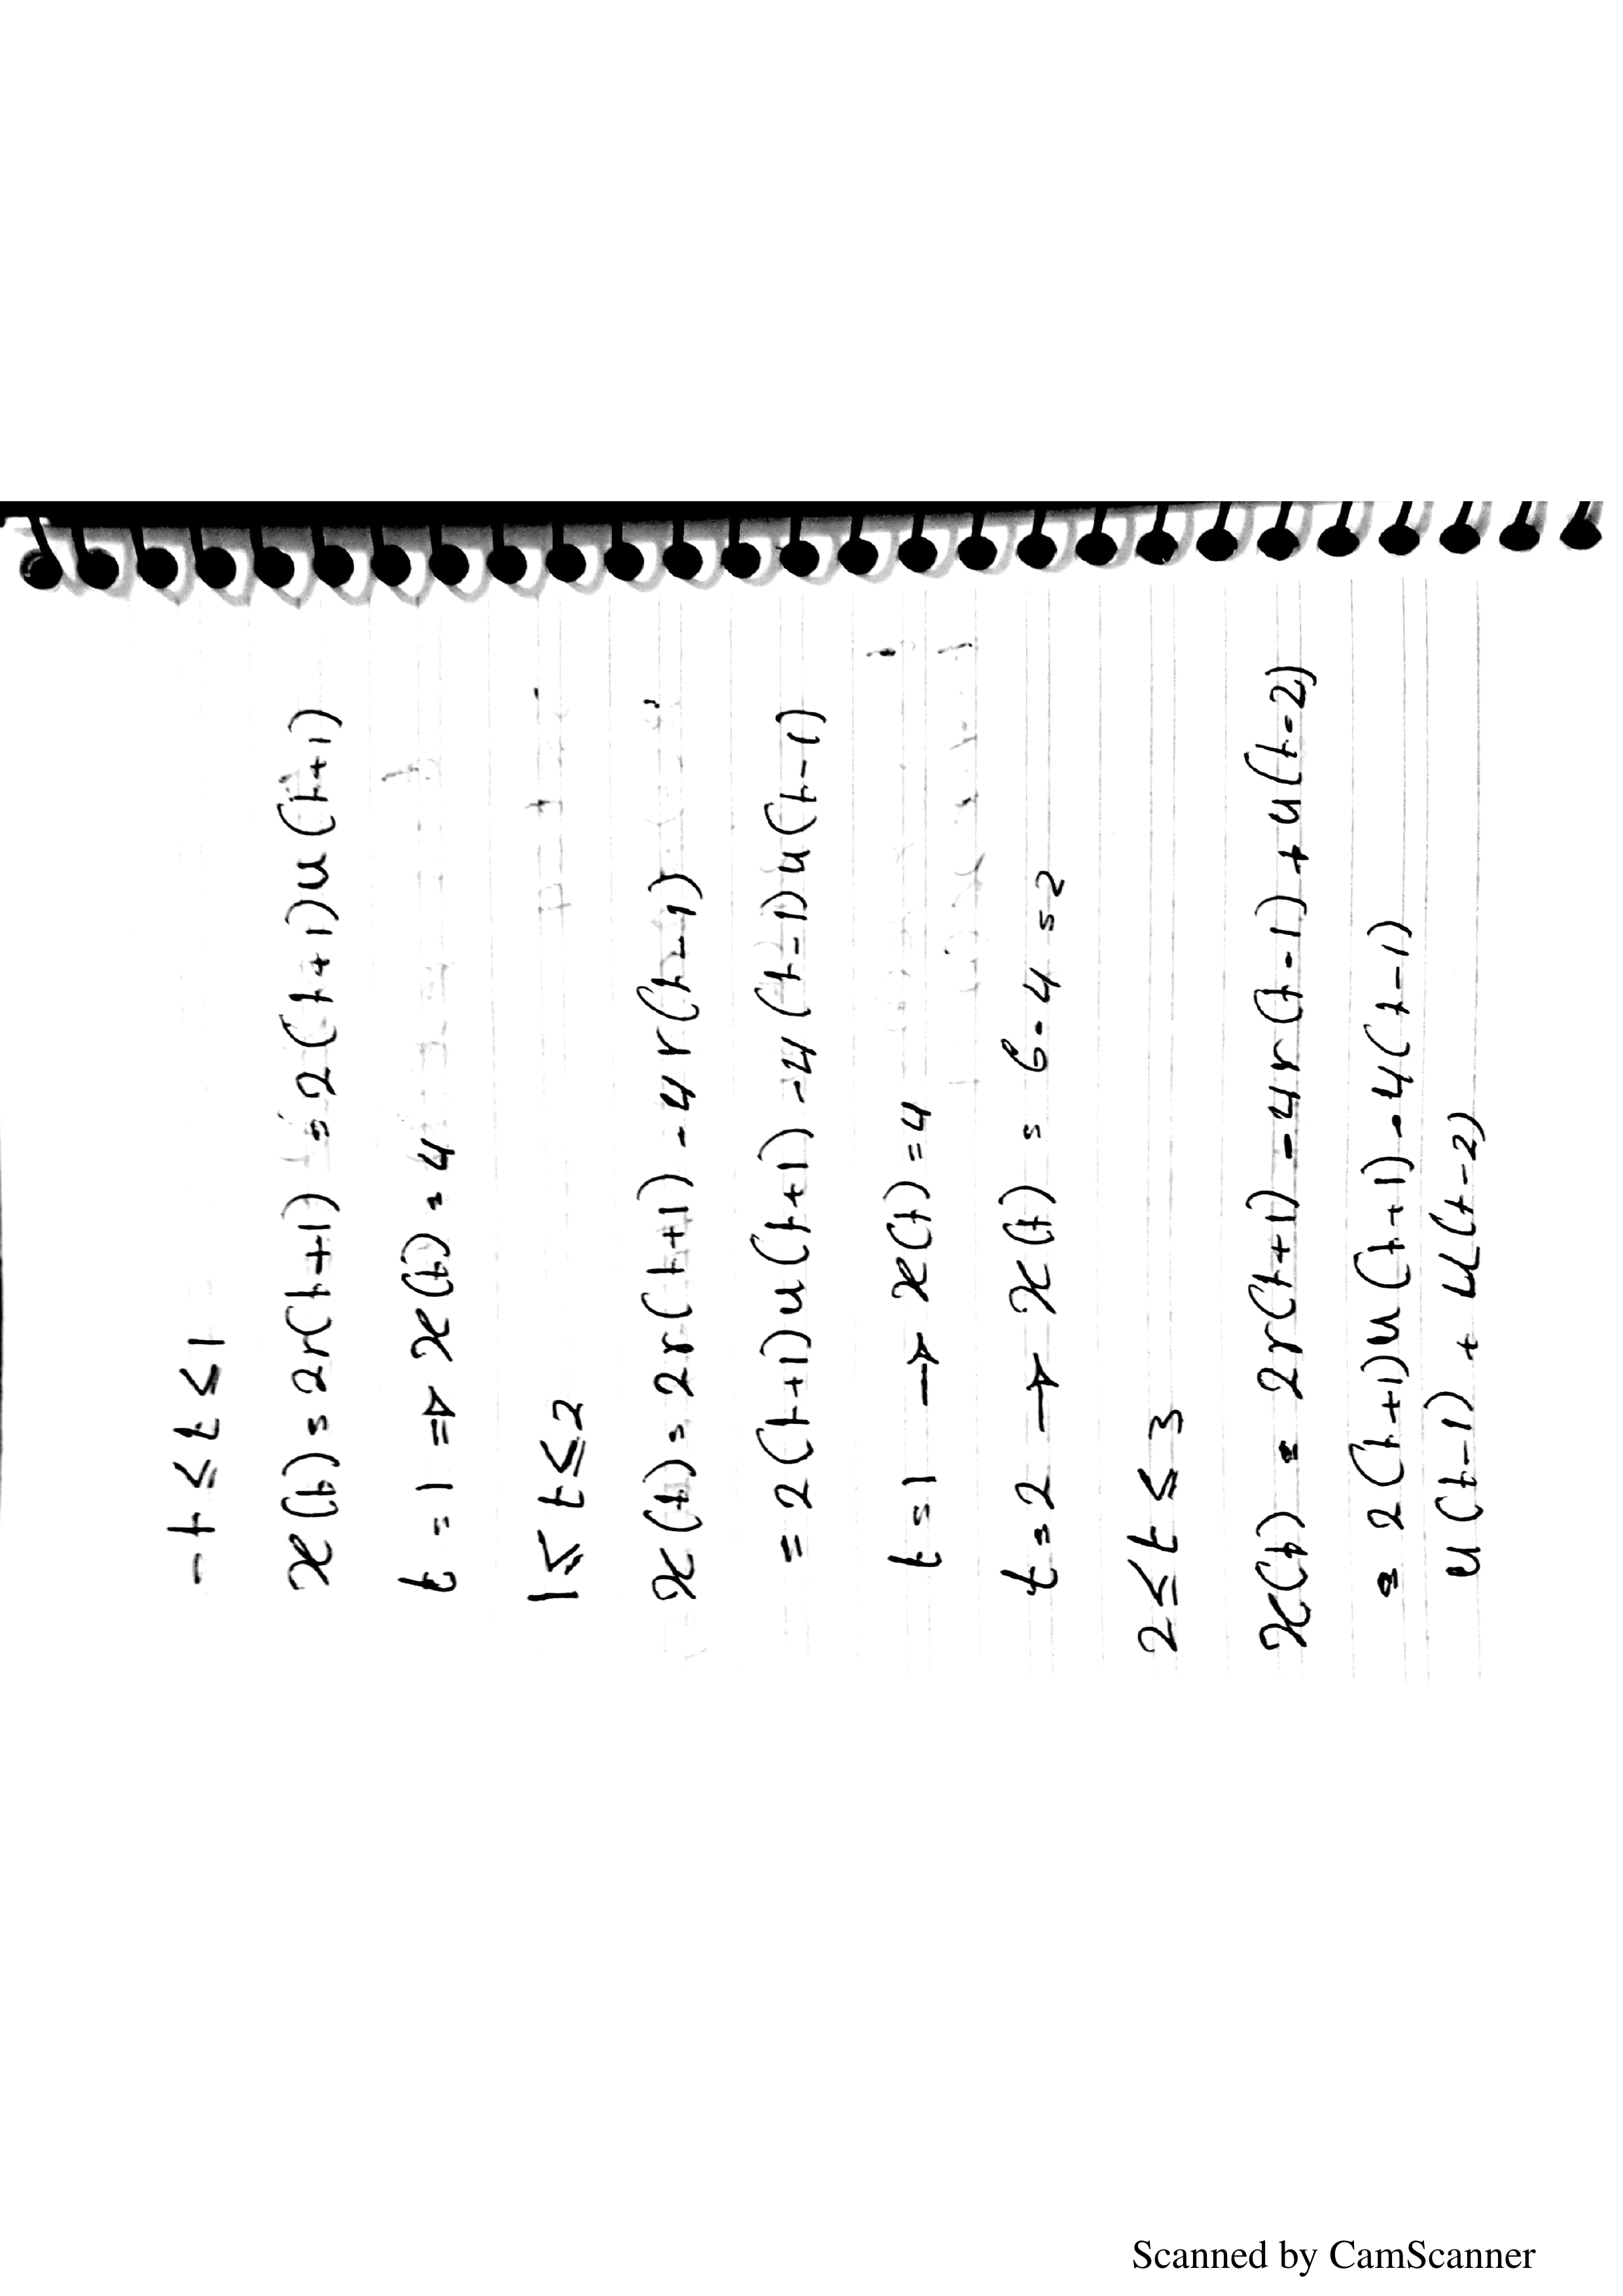 -t ≤ t ≤ 1
x(t) = 2r(t+1) = 2(t+1)u(t+1)
t = 1 ⇒ x(t) = 4
1 ≤ t ≤ 2
x(t) = 2r(t+1) - 4r(t-1)
= 2(t+1)u(t+1) - 4(t-1)u(t-1)
t = 1 → x(t) = 4
t = 2 → x(t) = 6 - 4 = 2
2 ≤ t ≤ 3
x(t) = 2r(t+1) - 4r(t-1) + u(t-2)
= 2(t+1)u(t+1) - 4(t-1)
u(t-1) + u(t-2)
Scanned by CamScanner